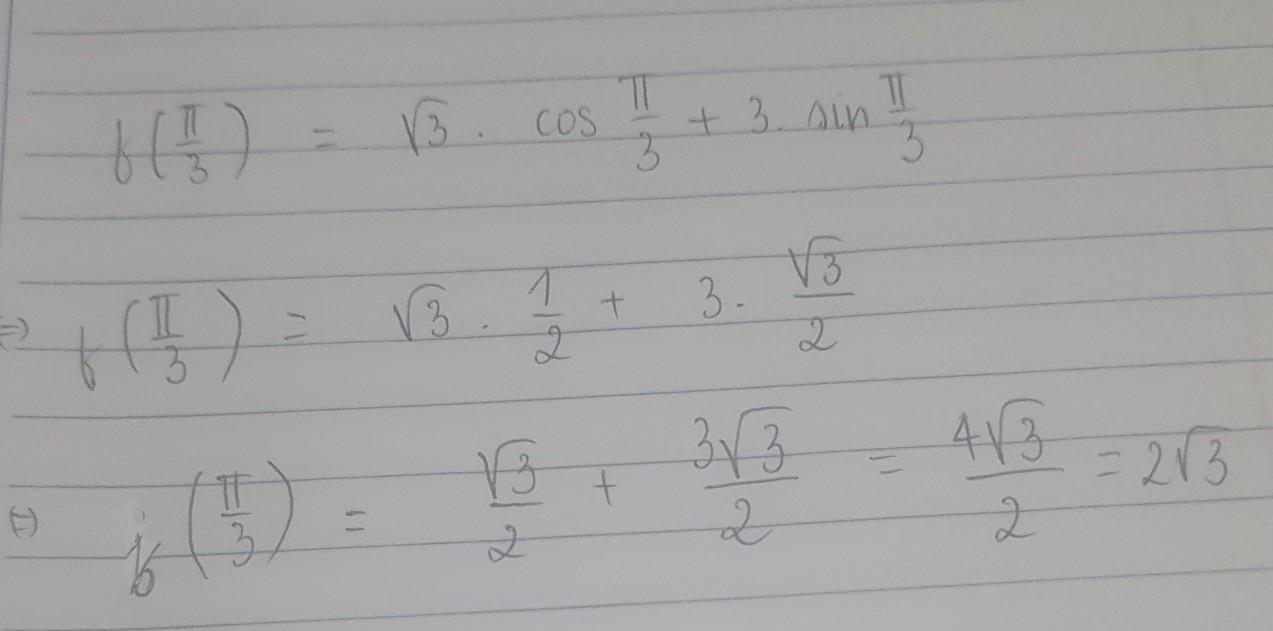 f(π/3) = √3 . cos π/3 + 3. sin π/3
=) f(π/3) = √3 . 1/2 + 3. √3/2
=) f(π/3) = √3/2 + 3√3/2 = 4√3/2 = 2√3